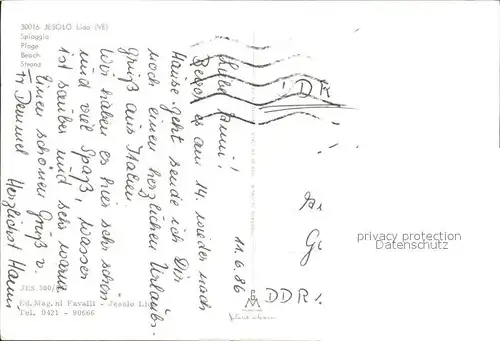 30016 JESOLO Lido (VE)
Spiaggia
Plage
Beach
Strand
Liebe Anni!
Bevor es am 14. wieder nach
Hause geht sende ich Dir
noch einen herzlichen Urlaubs-
gruß aus Italien.
Wir haben es hier sehr schön
und viel Spaß, Wasser
ist sauber und sehr warm
Einen schönen Gruß v.
Fr Demmel Herzlichst Hanni
11.6.86
DDR
DDR
privacy protection
Datenschutz
JES 300/
Ed. Mag. ni Favalli - Jesolo Li
Tel. 0421 - 90666